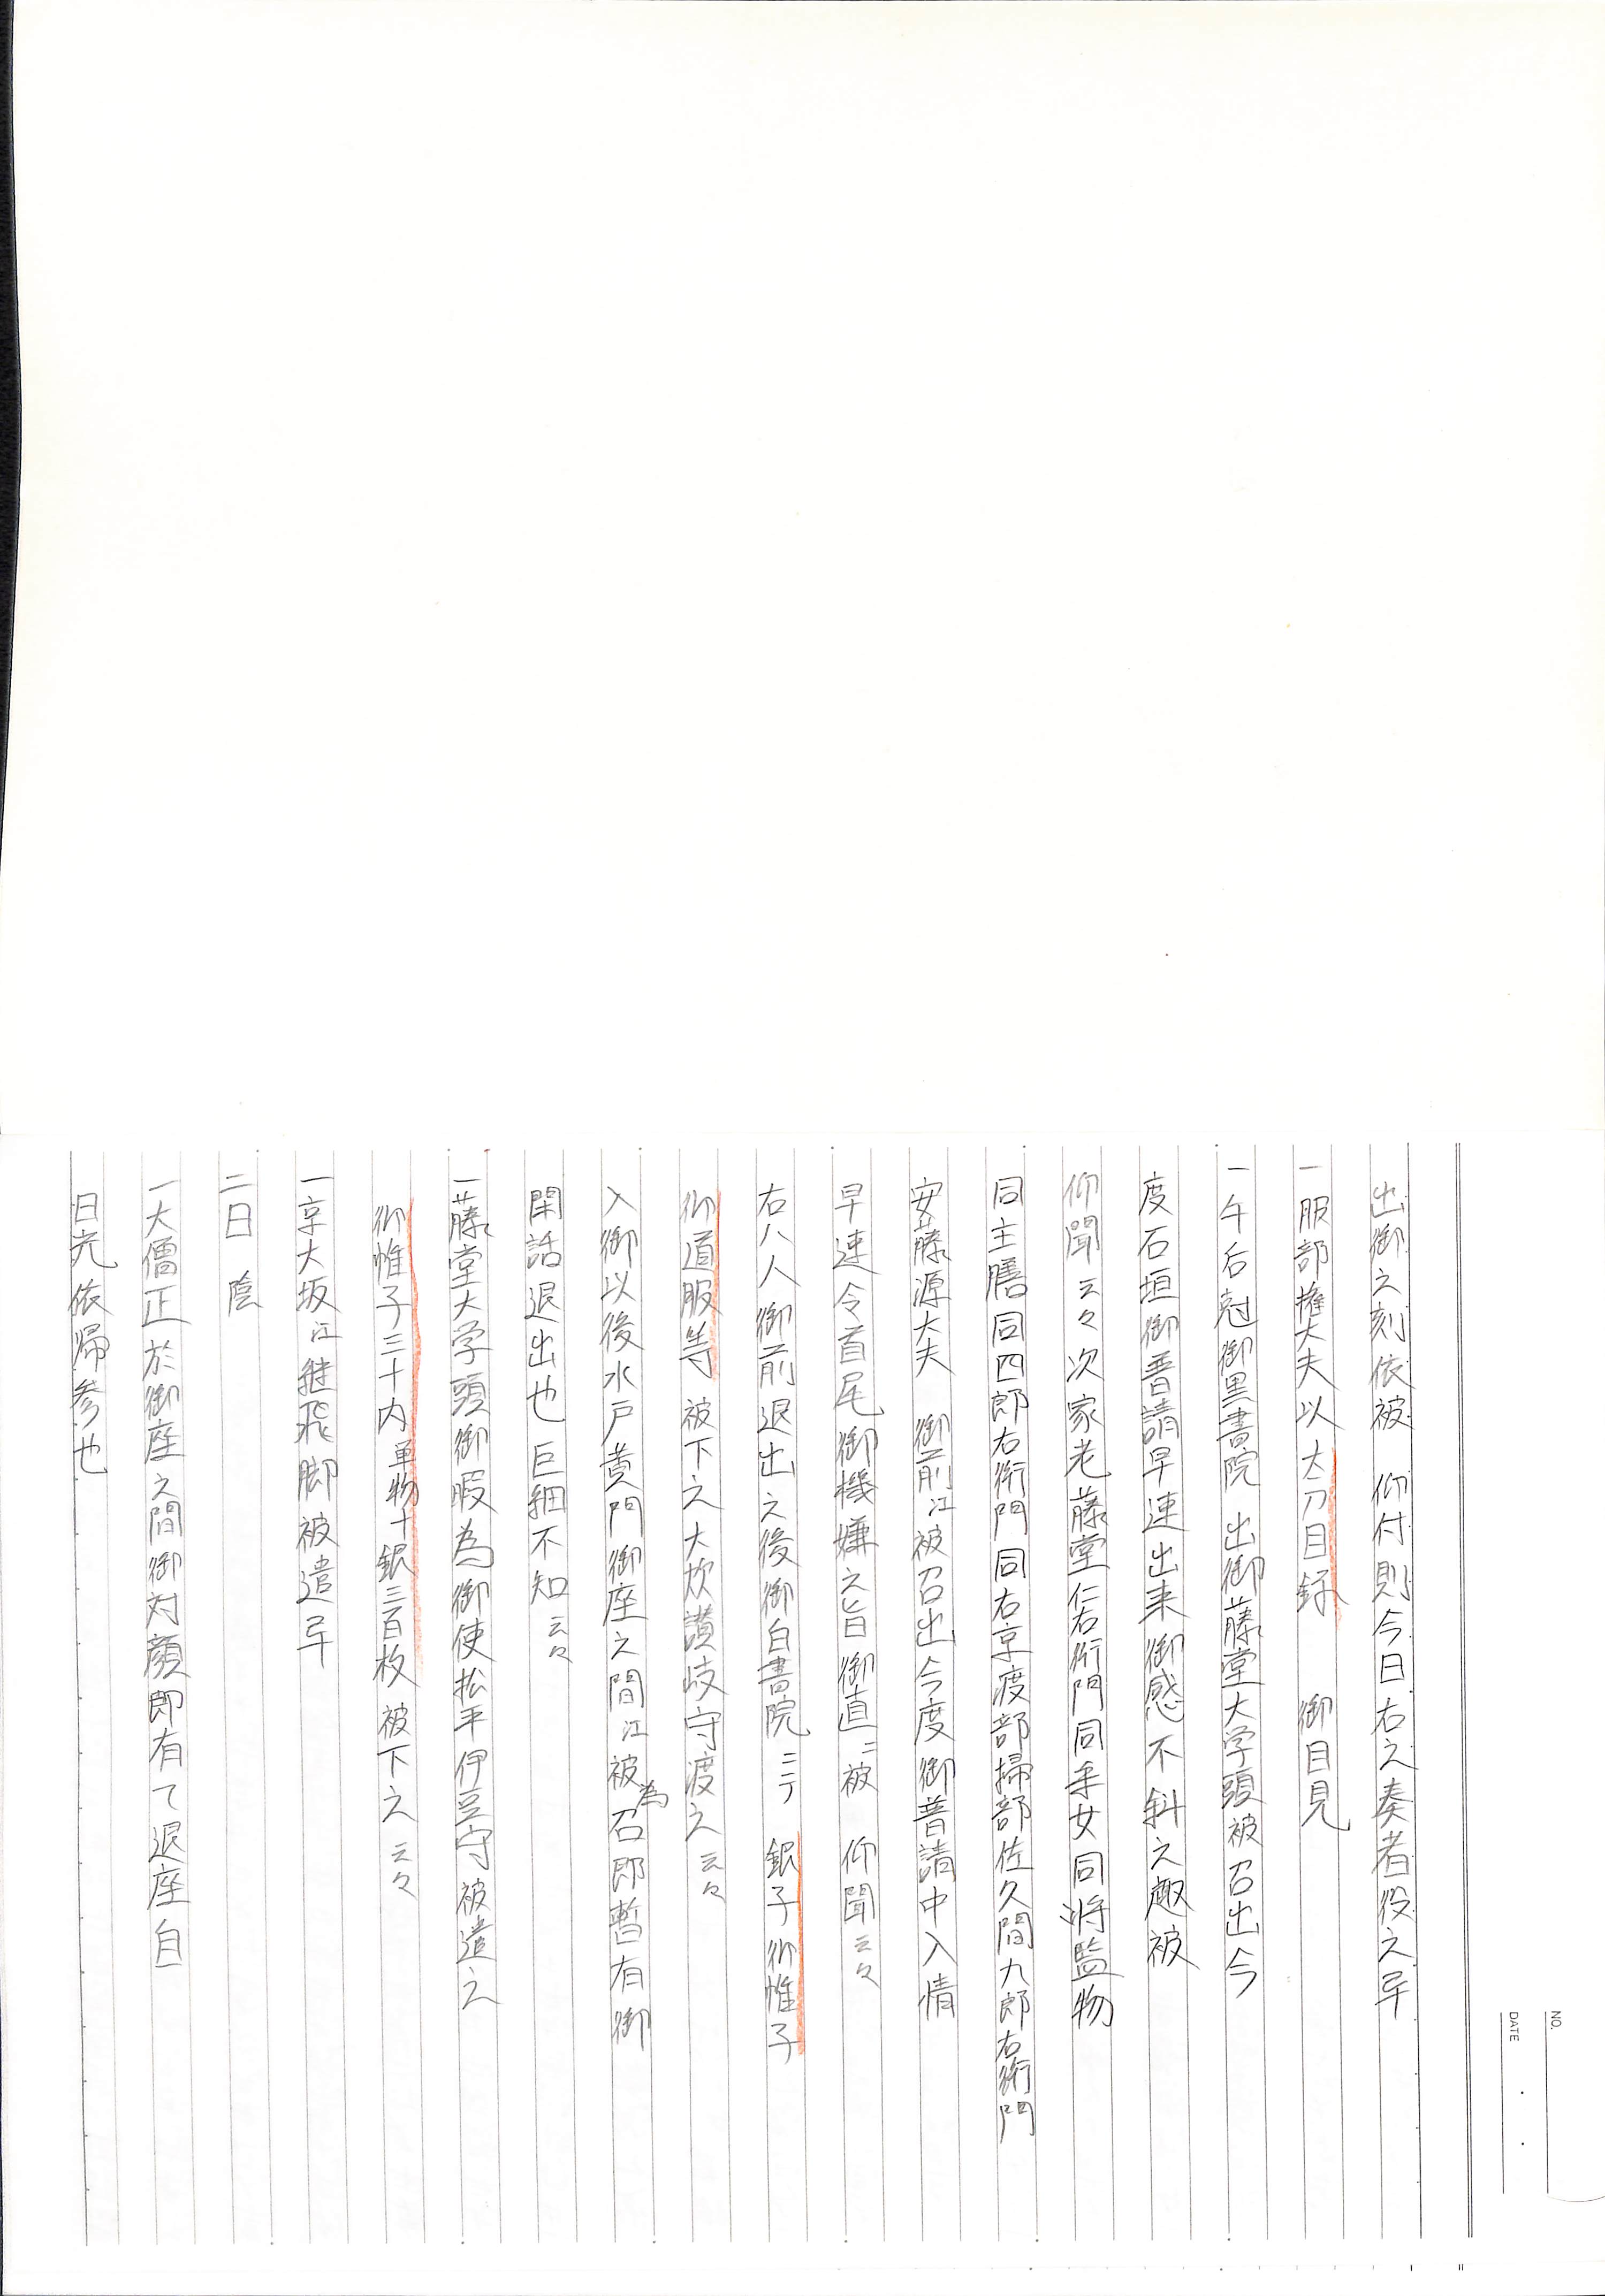 出御之刻依被　仰付則今日右之奏者役之㝵
一服部権大夫以太刀目録　　御目見
一午后尅御黒書院　出御藤堂大学頭被召出今
度石垣御普請早速出来御感不斜之趣被
仰聞云々次家老藤堂仁右衛門同采女同将監物
同主膳同四郎右衛門同右京渡部掃部佐久間九郎右衛門
安藤源大夫　御前江被召出今度御普請中入情
早速令首尾御機嫌之旨御直ニ被　仰聞云々
右八人御前退出之後御白書院ニテ　銀子御帷子
御道服等　被下之大炊讃岐守渡之云々
入御以後水戸黄門御座之間江被為召即暫有御
閑話退出也巨細不知云々
一藤堂大学頭御暇為御使松平伊豆守被遣之
御帷子三十内単物十銀三百枚　被下之云々
一享大坂江継飛脚被遣㝵
二日　陰
一大僧正於御座之間御対顔即有て退座自
日光依帰参也
NO.
DATE　・　・